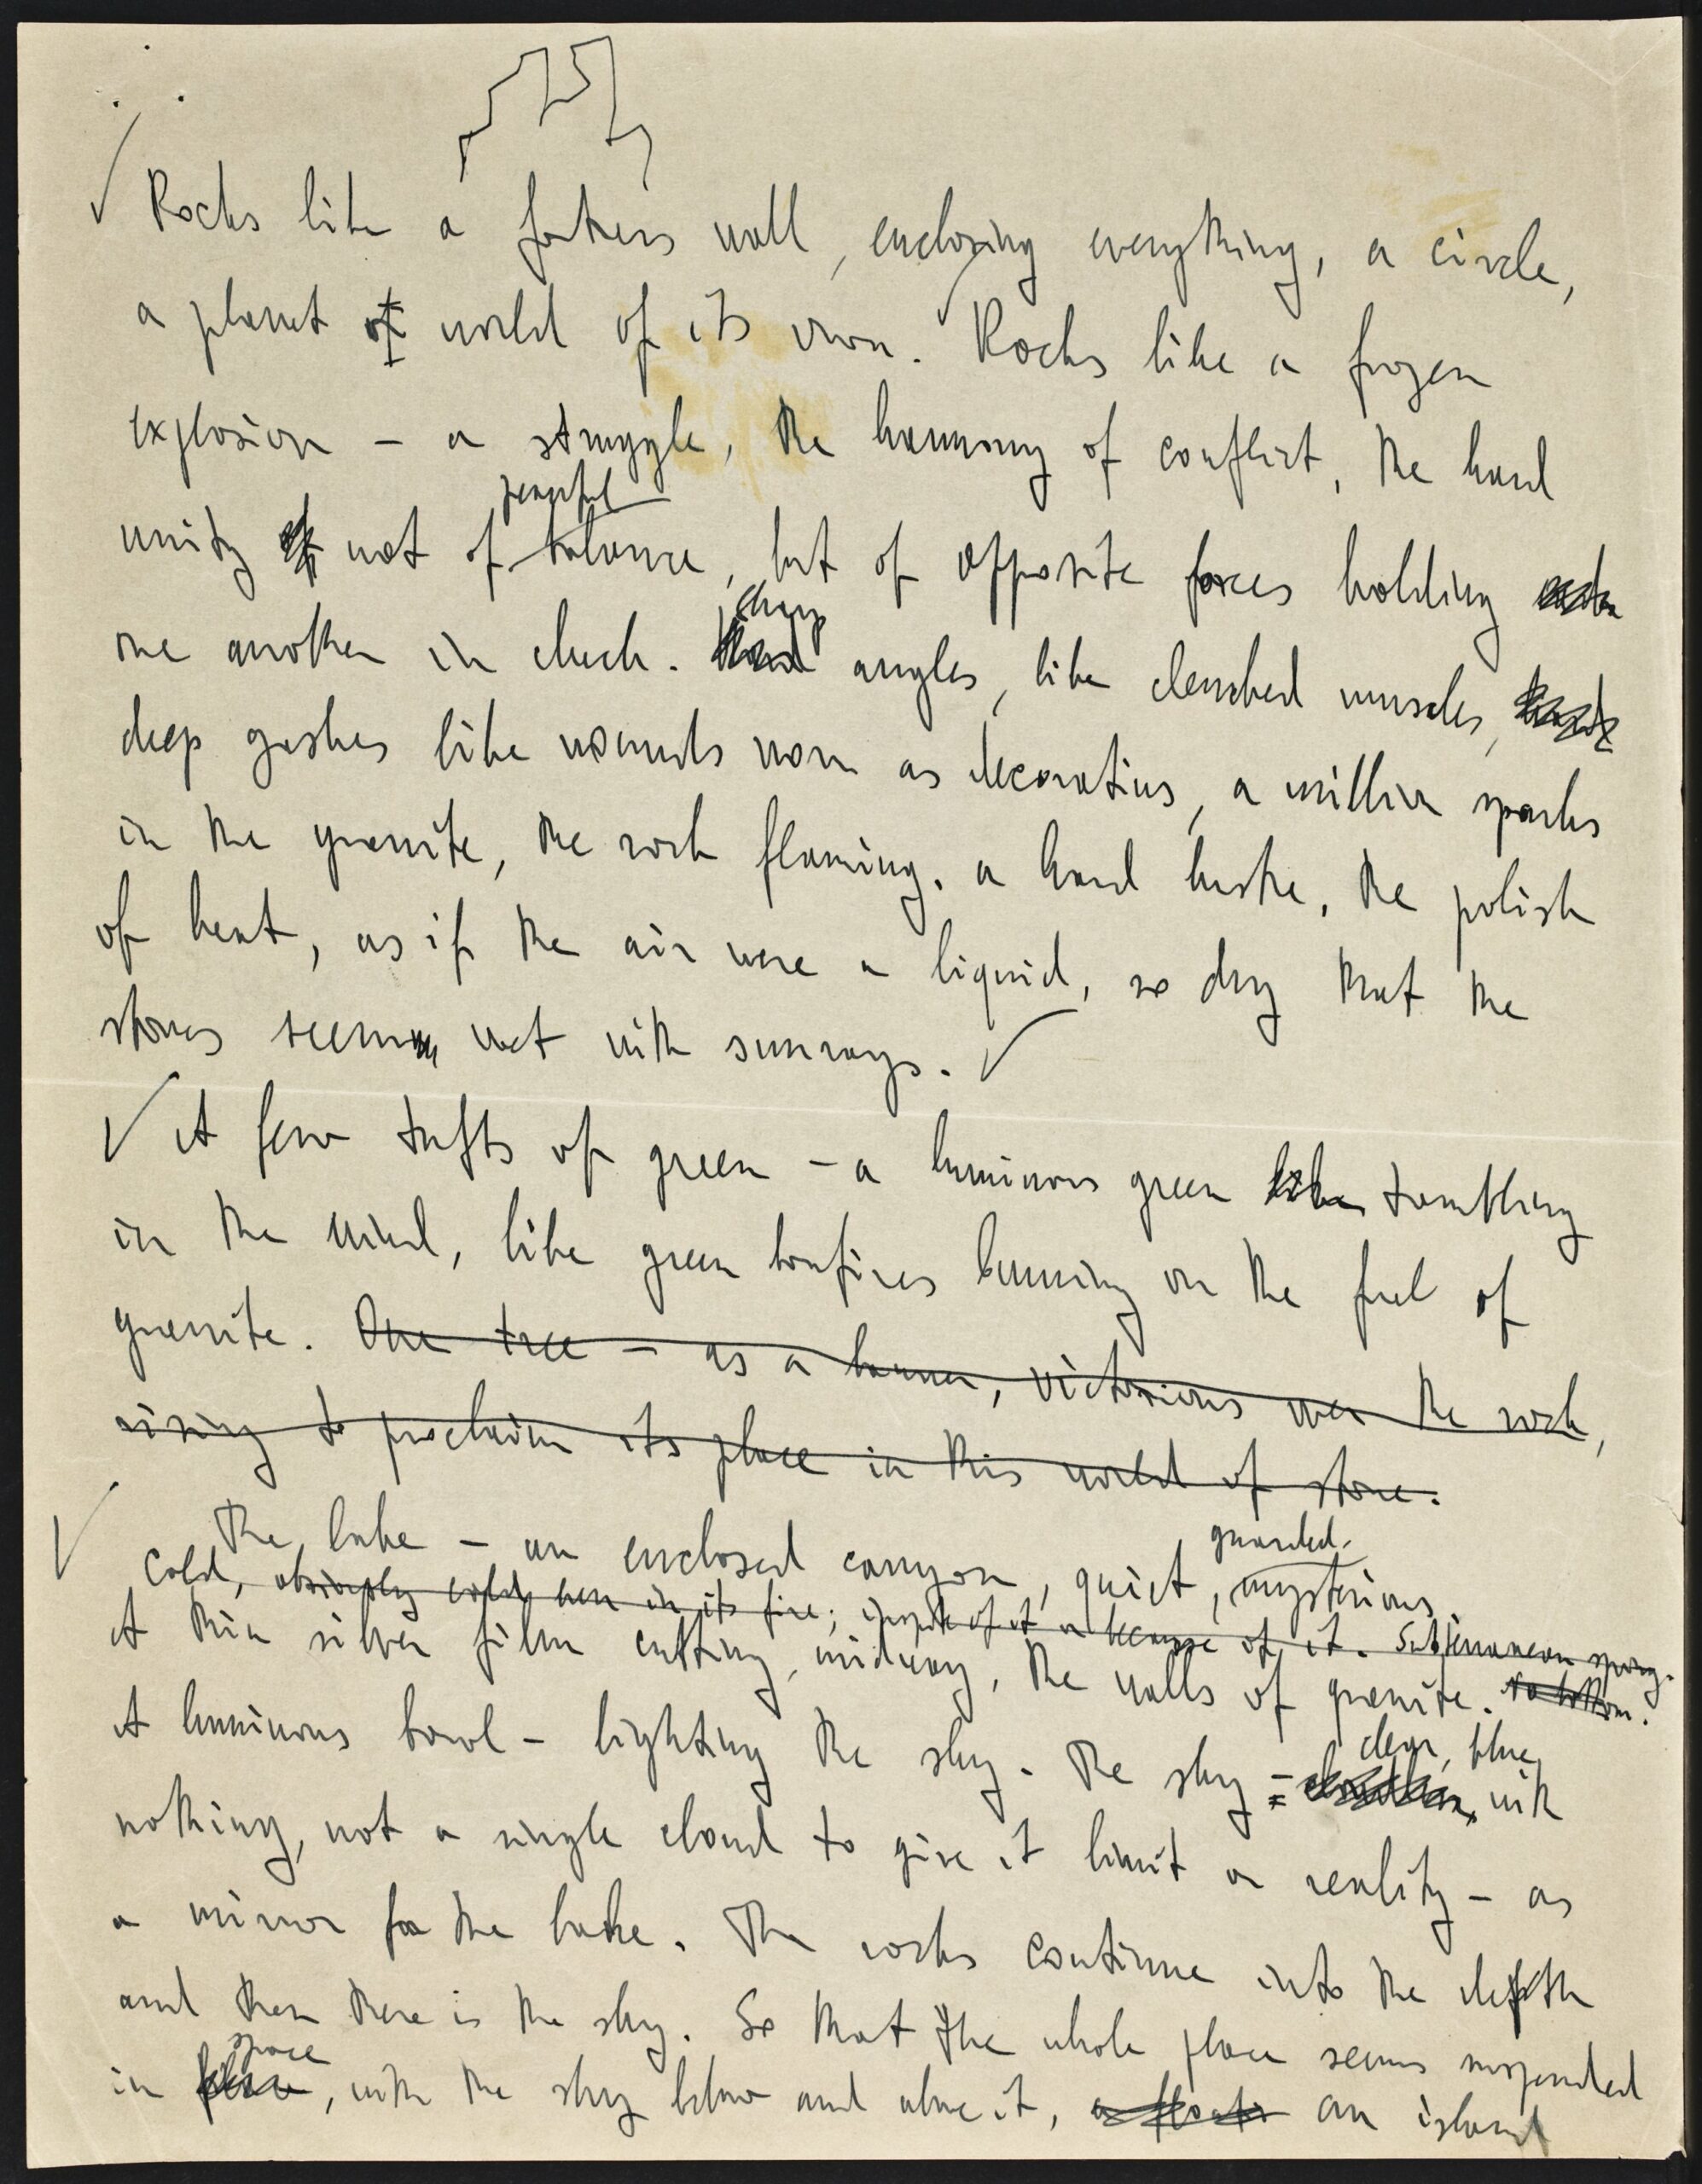 Rocks like a fortress wall, enclosing everything, a circle,
a planet of world of its own. Rocks like a frozen
explosion – a struggle, the harmony of conflict, the hard
peaceful
unity of not of balance, but of opposite forces holding each
sharp
one another in check. Hard angles, like clenched muscles,
deep gashes like wounds worn as decorations, a million sparks
in the granite, the rock flaming, a hard lustre, the polish
of heat, as if the air were a liquid, so dry that the
stones seem wet with sunrays.
A few tufts of green – a luminous green like trembling
in the wind, like green bonfires burning on the fuel of
granite. One tree – as a banner, victorious over the rock,
rising to proclaim its place in this world of stone.
guarded.
The lake – an enclosed canyon, quiet, mysterious
Cold, cold here in its fire; inspite of it or because of it. Subterranean spring.
A thin silver film cutting, midway, the walls of granite. No bottom.
A luminous bowl – lighting the sky. The sky – clear, blue, with
nothing, not a single cloud to give it limit or reality – as
a mirror for the lake. The rocks continue into the depth
and then there is the sky. So that the whole place seems suspended
space
in place, with the sky below and above it, a float an island